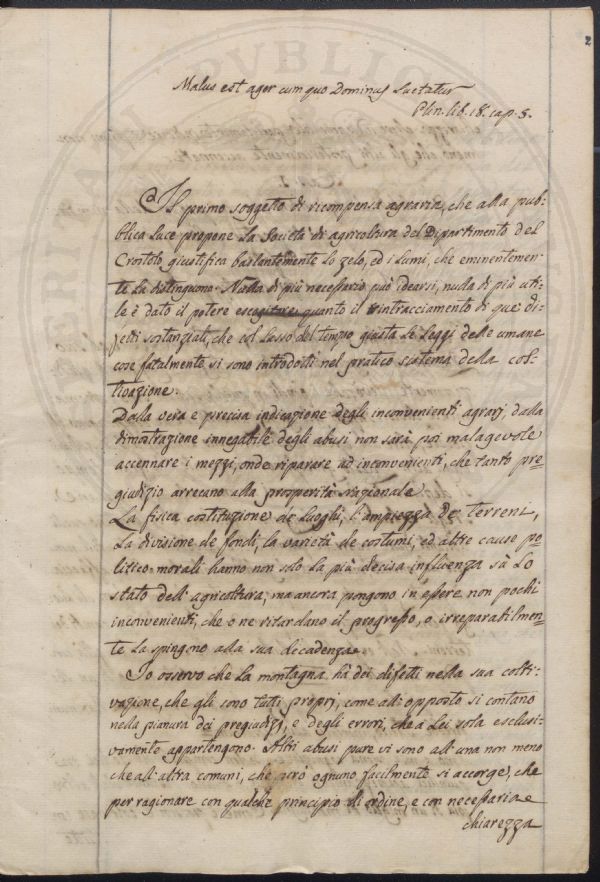 2
Malus est ager cum quo Dominus luctatur
Plin. lib. 18. cap. 5.
Il primo soggetto di ricompensa agraria, che alla pub=
blica luce propone la Società di agricoltura del Dipartimento del
Crostolo giustifica bastantemente lo zelo, ed i lumi, che eminentemen=
te la distinguono. Nulla di più necessario può idearsi, nulla di più uti=
le è dato il potere escogitare quanto il rintracciamento di que' di=
fetti sostanziali, che col lasso del tempo giusta le leggi delle umane
cose fatalmente si sono introdotti nel pratico sistema della col=
tivazione.
Dalla vera e precisa indicazione degli inconvenienti agrarj, dalla
dimostrazione innegabile degli abusi non sarà poi malagevole
accennare i mezzi, onde riparare ad inconvenienti, che tanto pre=
giudizio arrecano alla prosperità nazionale.
La fisica costituzione de' luoghi, l'ampiezza de' terreni,
la divisione de' fondi, la varietà de' costumi, ed altre cause po=
litico-morali hanno non solo la più decisa influenza su lo
stato dell'agricoltura, ma ancora pongono in essere non pochi
inconvenienti, che o ne ritardano il progresso, o irreparabilmen=
te la spingono alla sua decadenza.
Io osservo che la montagna ha dei difetti nella sua colti=
vazione, che gli sono tutti proprj, come all'opposto si contano
nella pianura dei pregiudizj, e degli errori, che a lei sola esclusi=
vamente appartengono. Altri abusi pure vi sono all'una non meno
che all'altra comuni, che però ognuno facilmente si accorge, che
per ragionare con qualche principio di ordine, e con necessaria
chiarezza